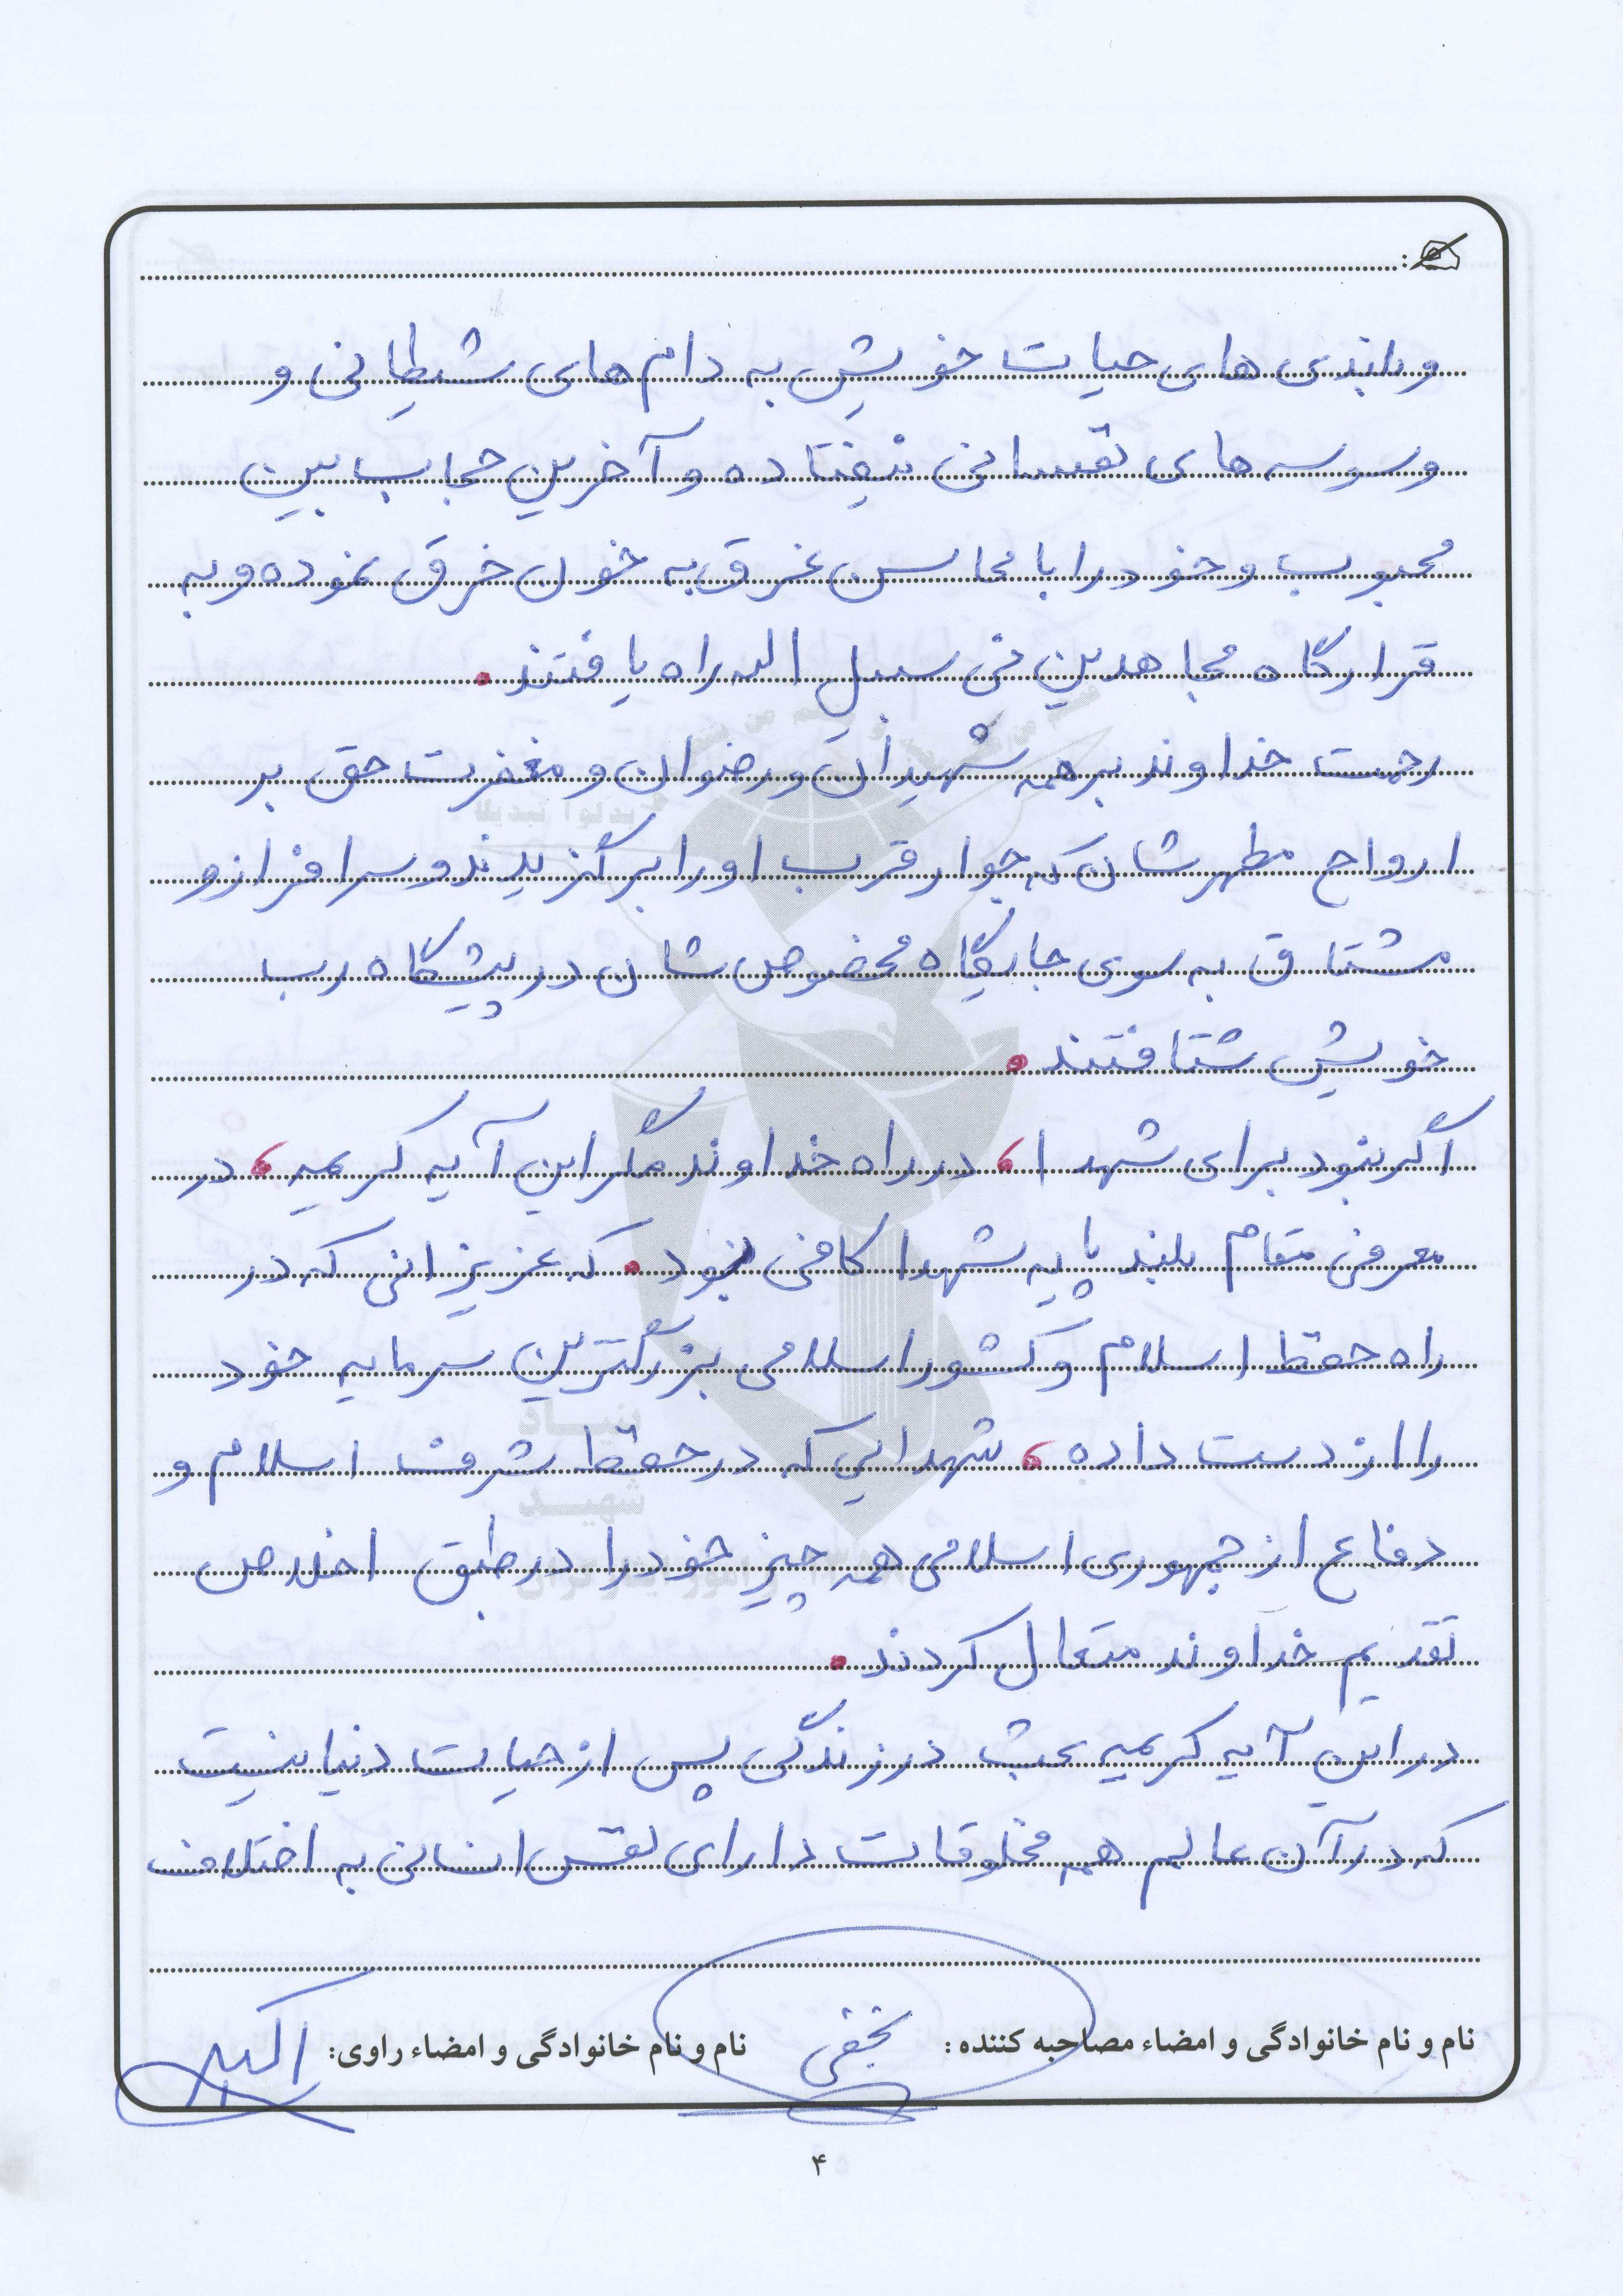 و بلندی های حیات خویش به دام های شیطانی و
وسوسه های نفسانی نیفتاده و آخرین حجاب بین
محبوب و خود را با محاسن غرق به خون خرق نموده و به
قرارگاه مجاهدین فی سبیل الله راه یافتند.
رحمت خداوند بر همه شهیدان و رضوان و مغفرت حق بر
ارواح مطهرشان که جوار قرب او را برگزیدند و سرافراز و
مشتاق به سوی جایگاه مخصوص شان در پیشگاه رب
خویش شتافتند.
اگر نبود برای شهدا، در راه خداوند مگر این آیه کریمه، در
معرفی مقام بلند پایه شهدا کافی بود. که عزیزانی که در
راه حفظ اسلام و کشور اسلامی بزرگترین سرمایه خود
را از دست داده، شهدایی که در حفظ شرف اسلام و
دفاع از جمهوری اسلامی همه چیز خود را در طبق اخلاص
تقدیم خداوند متعال کردند.
در این آیه کریمه بحث در زندگی پس از حیات دنیا نیست
که در آن عالم همه مخلوقات دارای نفس انسانی به اختلاف
نام و نام خانوادگی و امضاء مصاحبه کننده: نجفی نام و نام خانوادگی و امضاء راوی: اکبر
۴
بنیاد
شهید